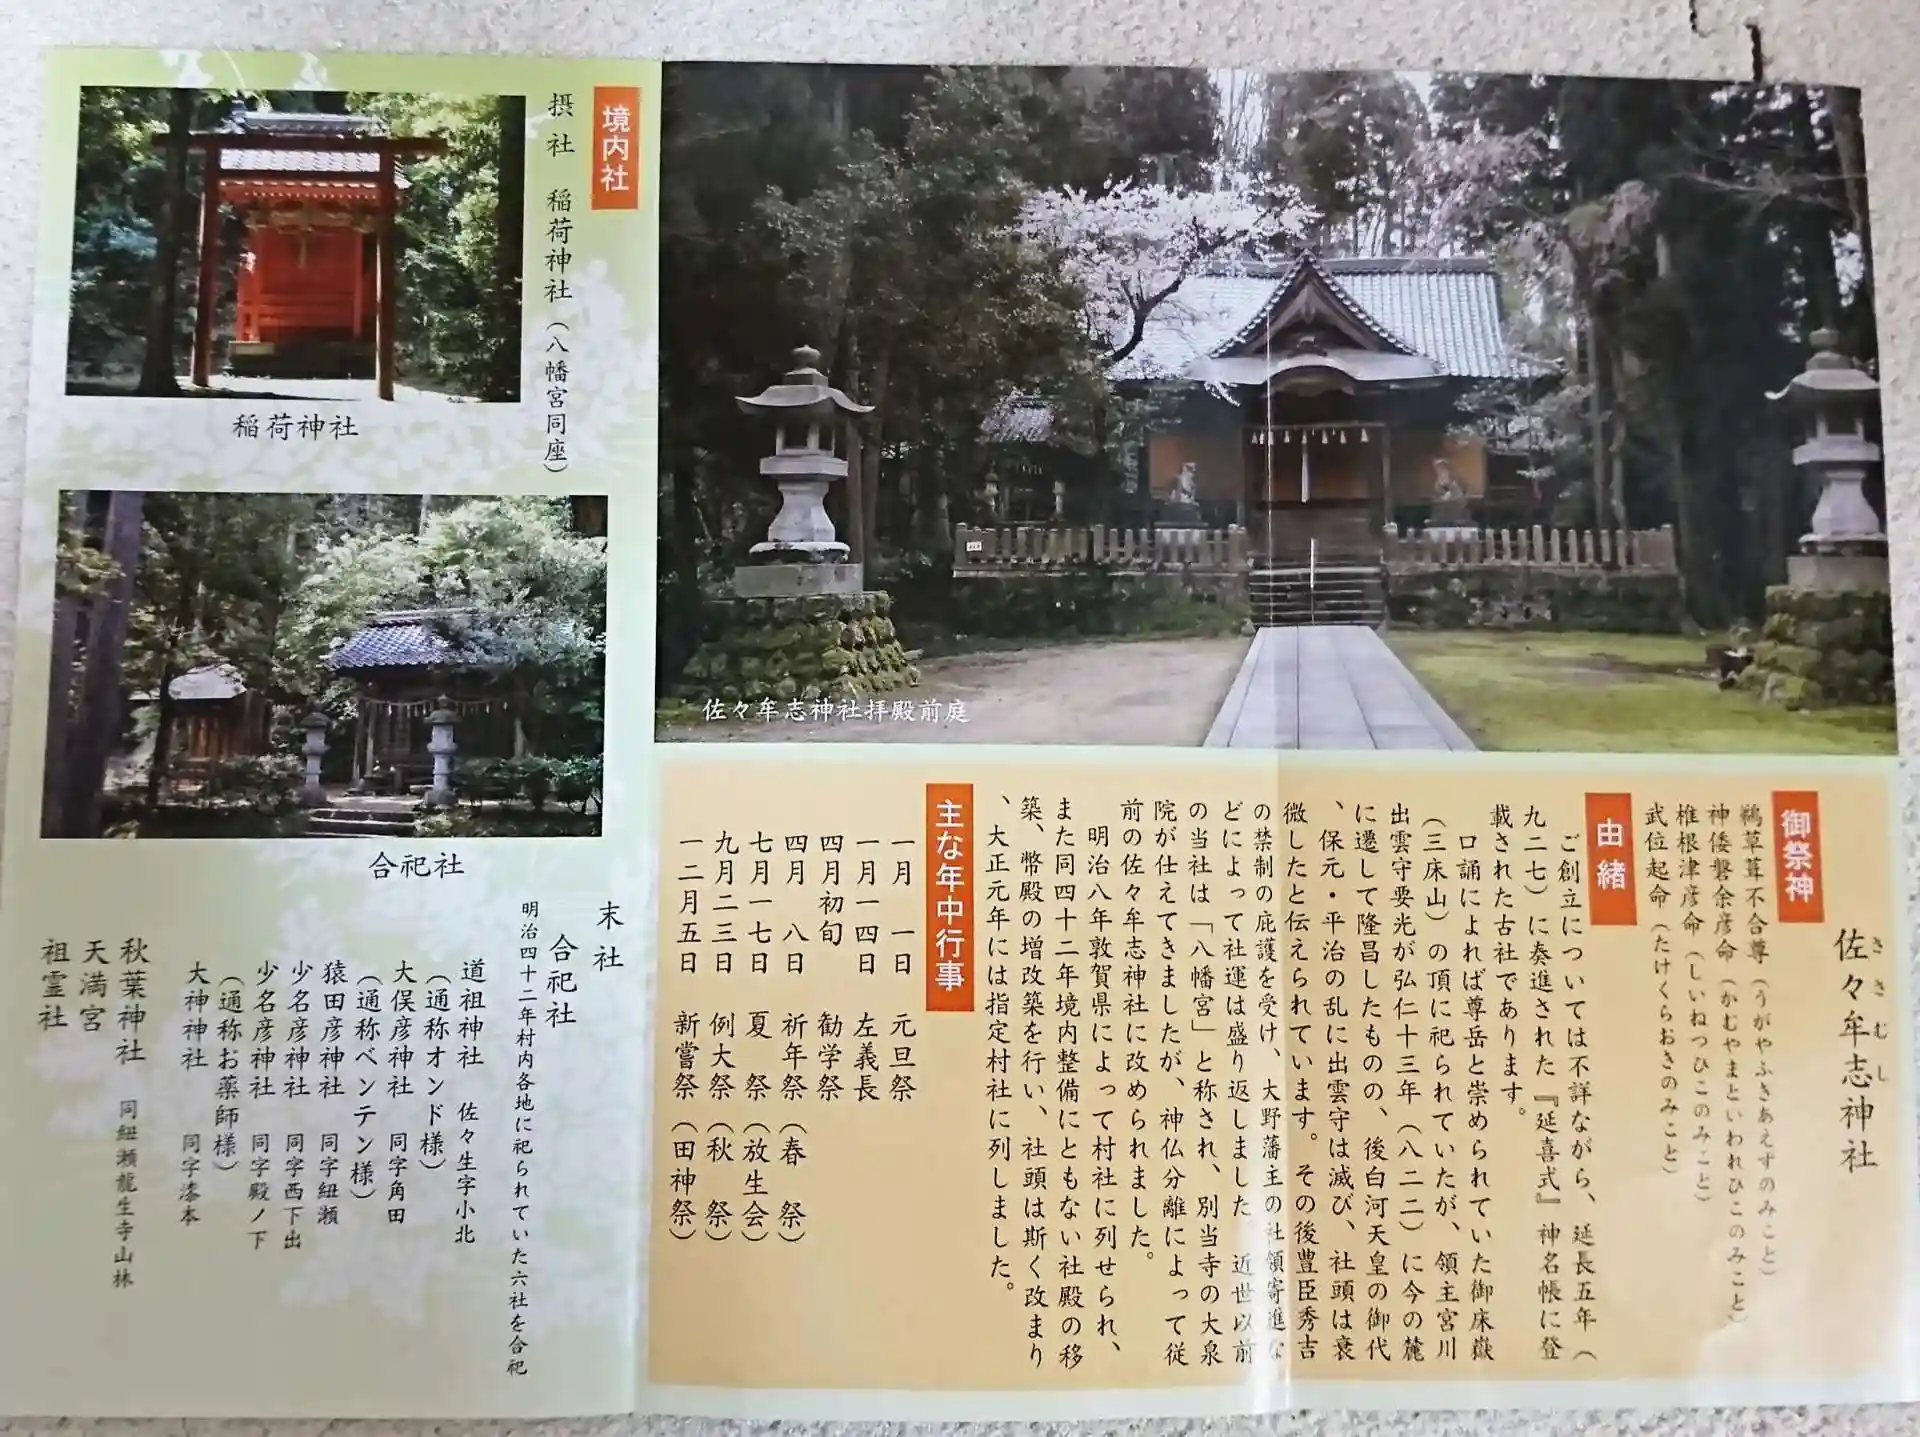 佐々牟志神社
さ さ む し
御祭神
鵜草葺不合尊（うがやふきあえずのみこと）
神倭磐余彦命（かむやまといわれひこのみこと）
椎根津彦命（しいねつひこのみこと）
武位起命（たけくらおきのみこと）
由緒
ご創立については不詳ながら、延長五年（
九二七）に奏進された『延喜式』神名帳に登
載された古社であります。
口誦によれば尊岳と崇められていた御床嶽
（三床山）の頂に祀られていたが、領主宮川
出雲守要光が弘仁十三年（八二二）に今の麓
に遷して隆昌したものの、後白河天皇の御代
、保元・平治の乱に出雲守は滅び、社頭は衰
微したと伝えられています。その後豊臣秀吉
の禁制の庇護を受け、大野藩主の社領寄進な
どによって社運は盛り返しました。近世以前
の当社は「八幡宮」と称され、別当寺の大泉
院が仕えてきましたが、神仏分離によって従
前の佐々牟志神社に改められました。
明治八年敦賀県によって村社に列せられ、
また同四十二年境内整備にともない社殿の移
築、幣殿の増改築を行い、社頭は斯く改まり
、大正元年には指定村社に列しました。
主な年中行事
一月　一日　元旦祭
一月一四日　左義長
四月初旬　勧学祭
四月　八日　祈年祭（春　祭）
七月一七日　夏　祭（放生会）
九月二三日　例大祭（秋　祭）
一二月五日　新嘗祭（田神祭）
佐々牟志神社拝殿前庭
境内社
摂社　稲荷神社（八幡宮同座）
稲荷神社
合祀社
末社
合祀社
明治四十二年村内各地に祀られていた六社を合祀
道祖神社　佐々生字小北
（通称オンド様）
大俣彦神社　同字角田
（通称ベンテン様）
猿田彦神社　同字紐瀬
少名彦神社　同字西下出
少名彦神社　同字殿ノ下
（通称お薬師様）
大神神社　同字漆本
秋葉神社　同紐瀬龍生寺山林
天満宮
祖霊社